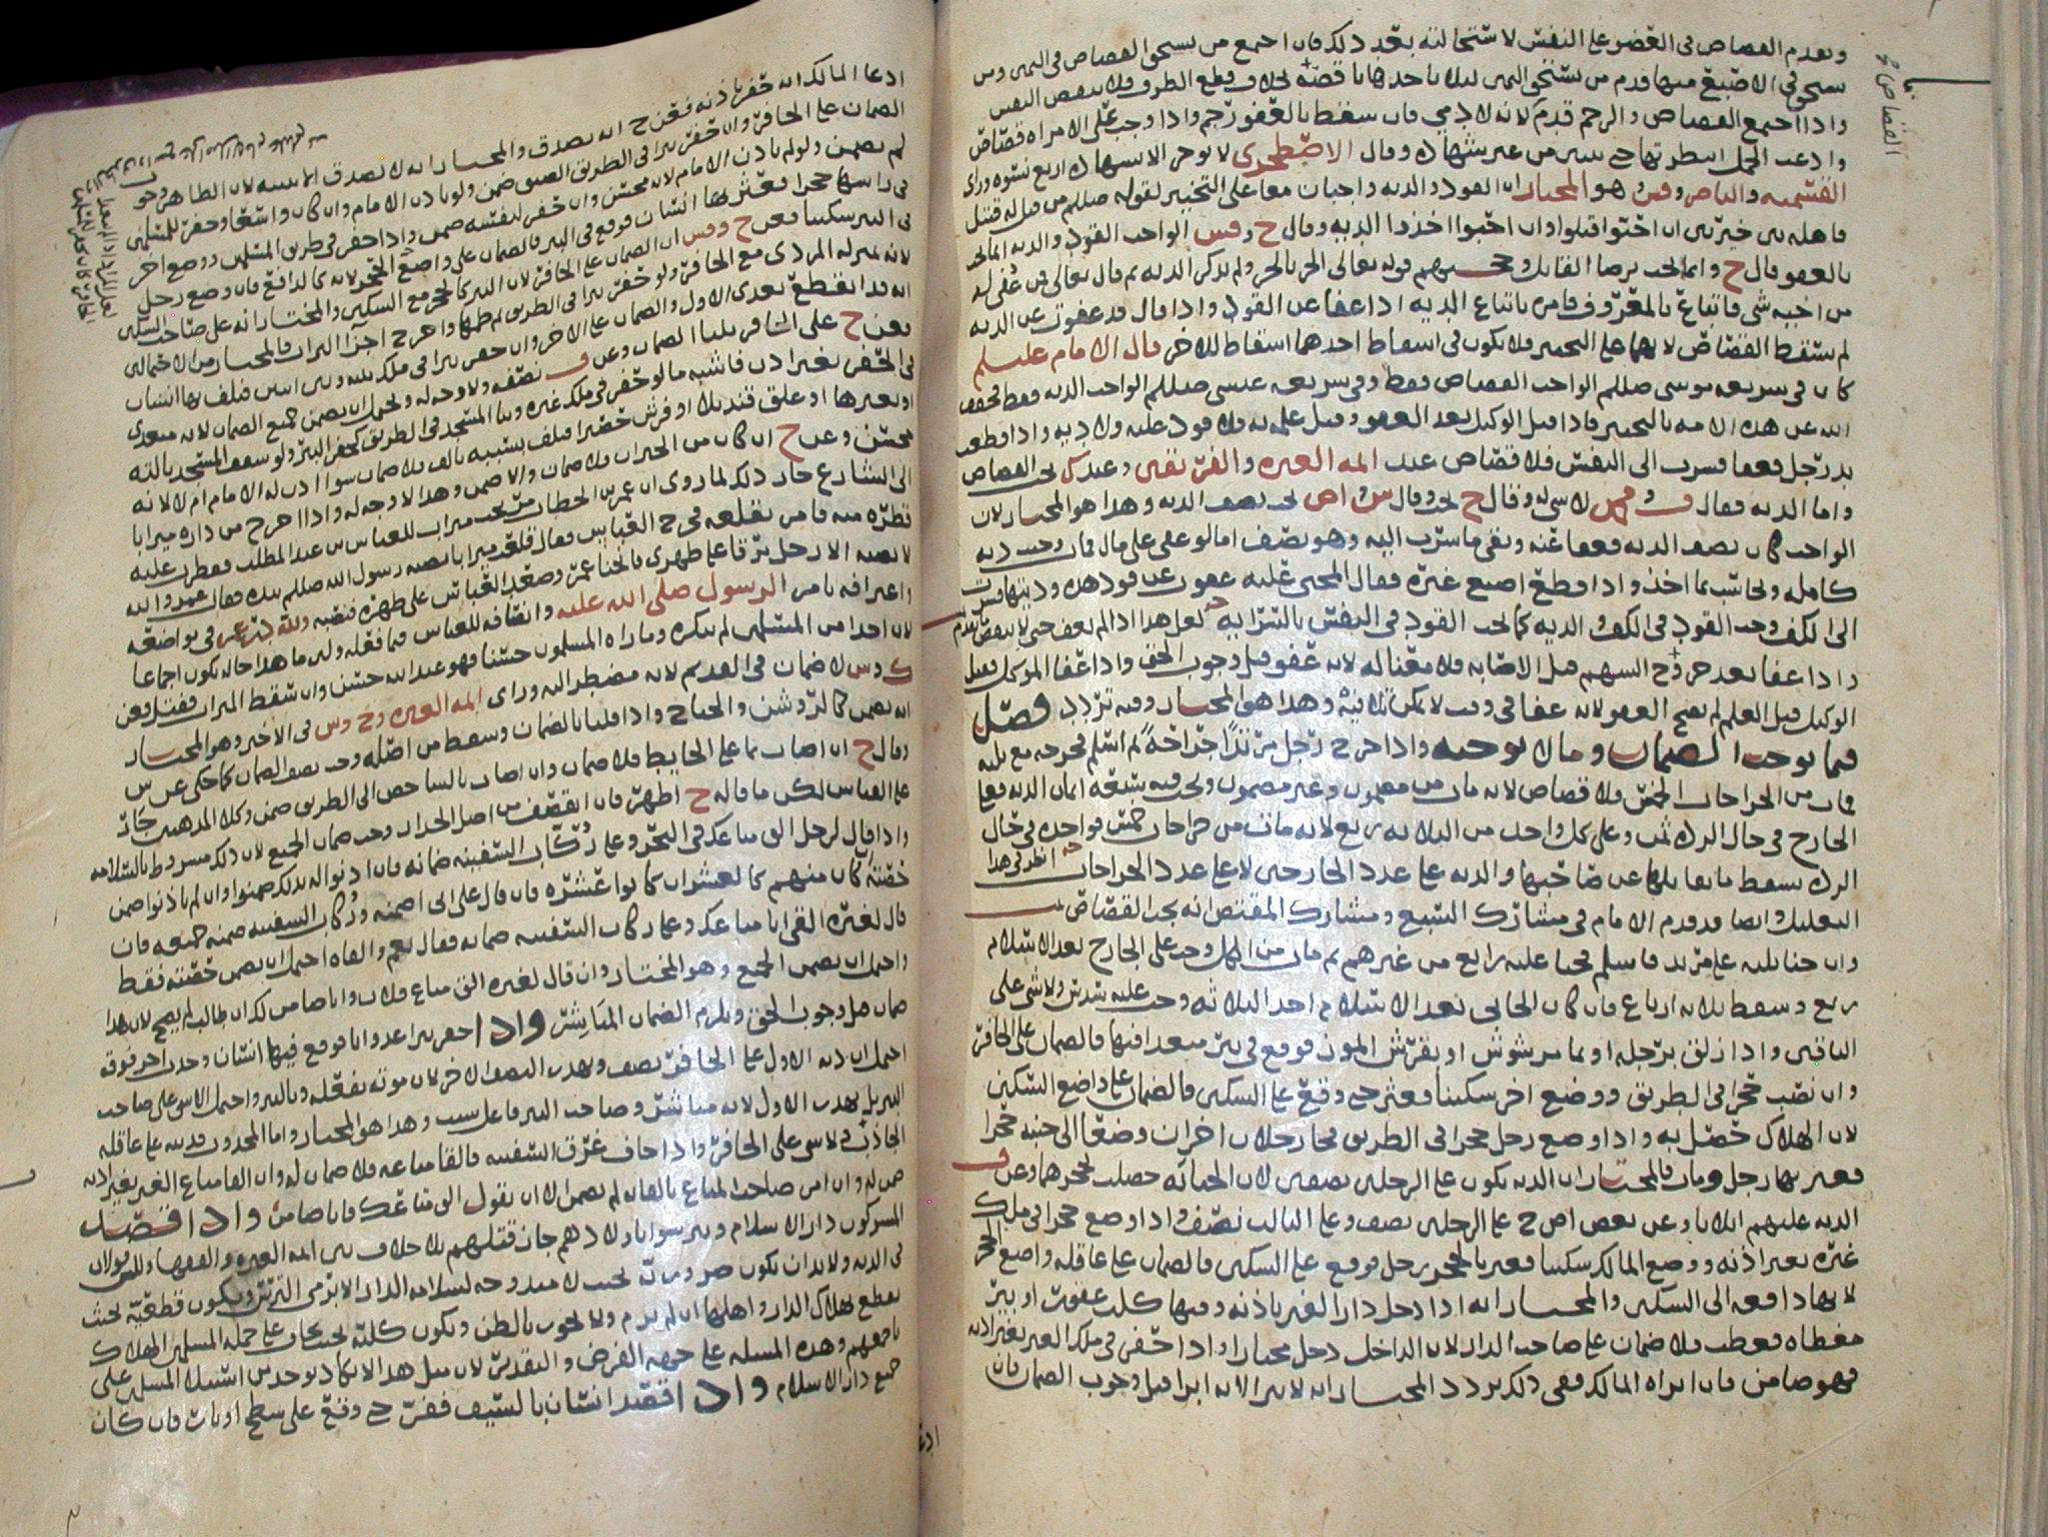 ويقدم القصاص في العضو على النفس لاستحالته بعد ذلك فان اجتمع من يستحق القصاص في اليمين ومن
يستحق في الاصبع منها قدم من يستحق اليمين لئلا ياخذها ناقصة بخلاف قطع الطرف فلا ينقص النفس
واذا اجتمع القصاص والرجم قدم لانه لادمي فان سقط بالعفو رجم واذا وجب على الامراه قصاص
وادعت الحمل انتظر بها حتى يتبين من عبر شهاده وقال الاصطخري لا يوخر الا بشهاده اربع نسوه وراي
القسميه والناصر وقش وهو المختار ان القود والديه واجبان معا على التخيير لقوله صللم من قتل له قتيل
فاهله بين خيرتين ان احبوا قتلوا وان احبوا اخذوا الديه وقال ح وقش الواجب القود والديه انما تجب
بالعفو قال ح وانما تجب برضا القاتل وحجتهم قوله تعالى الحر بالحر ولم يذكر الديه ثم قال تعالى فمن عفي له
من اخيه شي فاتباع بالمعروف فامره باتباع الديه اذا عفا عن القود واذا قال قد عفوت عن الديه
لم يسقط القصاص لانهما على التخيير فلا يكون في اسقاط احدهما اسقاط للاخر قال الامام عليلم
كان في شريعه موسى صللم الواجب القصاص فقط وفي شريعه عيسى صللم الواجب الديه فقط فخفف
الله عن هذه الامه بالتخيير فاذا قتل الوكيل بعد العفو وقبل علمه به فلا قود عليه ولا ديه واذا قطعت
يد رجل فعفا فسرت الى النفس فلا قصاص عند ايمه العتره والفريقين وعند ك يجب القصاص
واما الديه فقال لا شي له وقال ح تجب وقال ش واص تجب نصف الديه وهذا هو المختار لان
الواجب كان نصف الديه فعفا عنه وبقي ما سرت اليه وهو نصف اما لو عفى على مال فان وجبت ديه
كامله وتحاسب بما اخذ واذا قطع اصبع غيره فقال المجني عليه عفوت عن قود هذه وديتها فسرت
الى الكف وجب القود في الكف او الديه كما يجب القود في النفس بالسرايه لعل هذا اذا لم يعف حتى
واذا عفا بعد خروج السهم قبل الاصابه فلا معنا له لانه عفو قبل وجوب الحق واذا عفا الموكل فقتل
الوكيل قبل العلم لم يصح العفو لانه عفا في وقت لا يمكن تلافيه وهذا هو المختار وفيه تردد فصل
فيما يوجب الضمان وما لا يوجبه واذا جرح رجل مرتدا جراحة ثم اسلم فجرحه مع ثلثه
فمات من الجراحات الخمس فلا قصاص لانه مات من مضمون وغير مضمون وتجب فيه سبعه اثمان الديه فعلى
الجارح في حال الرده ثمن وعلى كل واحد من الثلاثه ربع لانه مات من جراحات خمس فواحده في حال
الرده يسقط ما يقابلها عن صاحبها والديه على عدد الجارحين لا على عدد الجراحات انظر في هذا
التعليل وايضا قد قدم الامام في مشارك السبع ومشارك المقتص انه يجب القصاص
وان جنا ثلثه على مرتد فاسلم فجنا عليه رابع من غيرهم ثم مات من الكل وجب على الجارح بعد الاسلام
ربع وسقط ثلاثه ارباع فان كان الجاني بعد الاسلام احد الثلاثه وجب عليه سدس ولا شي على
الباقين واذا زلق برجله او بما مرشوش او بقرش الموز فوقع في بير متعدا فيها فالضمان على الحافر
وان نصب حجرا في الطريق ووضع اخر سكينا فعثر حتى وقع على السكين فالضمان على واضع السكين
لان الهلاك حصل به واذا وضع رجل حجرا في الطريق فجا رجلان اخران وضعا الى جنبه حجرا
فعثر بها رجل ومات فالمختار ان الديه تكون على الرجلين نصفين لان الجنايه حصلت بحجرهما وعن ف
الديه عليهم اثلاثا وعن بعض اص ح على الرجلين نصف وعلى الثالث نصف واذا وضع حجرا في ملك
غيره بغير اذنه ووضع المالك سكينا فعثر بالحجر رجل فوقع على السكين فالضمان على عاقله واضع الحجر
لانها دافعه الى السكين والمختار انه اذا دخل دار الغير باذنه وفيها كلب عقور او بير
مغطاه فعطب فلا ضمان على صاحب الدار لان الداخل دخل مختارا واذا حفر في ملك الغير بغير اذنه
فهو ضامن فان ابراه المالك ففي ذلك تردد المختار انه لا يبرا لانه ابرا قبل وجوب الضمان فان
القصاص
ادعا
ادعا المالك انه حفر باذنه فعن ح انه يصدق والمختار انه لا يصدق الا ببينه لان الظاهر وجوب
الضمان على الحافر وان حفر بيرا في الطريق الضيق ضمن ولو باذن الامام وان كان واسعا وحفر للمسلمين
لم يضمن ولو لم ياذن الامام لانه محسن وان حفر لنفسه ضمن واذا حفر في طريق المسلمين ووضع اخر
في راسها حجرا فعثر بها انسان فوقع في البير فالضمان على واضع الحجر لانه كالدافع فان وضع رجل
في البير سكينا فعن ح وقش ان الضمان على الحافر لان البير كالحجر مع السكين والمختار انه على صاحب السكين
لانه بمنزله المردي مع الحافر ولو حفر بيرا في الطريق ثم طمها واخرج اخر التراب فالمختار من الاحتمالين
انه قد انقطع تعدي الاول والضمان على الاخر وان حفر بيرا في ملك بينه وبين اثنين فتلف بها انسان
فعن ح على الشافر ثلثا الضمان وعن ف نصفه ولا وجه له ويحتمل ان يضمن جميع الضمان لانه متعدي
في الحفر بغير اذن فاشبه ما لو حفر في ملك غيره وبنا المسجد في الطريق كحفر البير ولو سقف المسجد بالته
او بغيرها او علق قنديلا او فرش حصيرا فتلف بسببه تالف فلا ضمان سوا اذن له الامام ام لا لانه
محسن وعن ح ان كان من الجيران فلا ضمان والا ضمن وهذا لا وجه له واذا اخرج من داره ميزابا
الى الشارع جاز ذلك لما روي ان عمر بن الخطاب مر تحت ميزاب للعباس بن عبد المطلب فقطرت عليه
قطره منه فامر بقلعه فخرج العباس فقال قلعت ميزابا نصبه رسول الله صللم بيده فقال عمر والله
لا نصبه الا رجل يرقا على ظهري فانحنا عمر وصعد العباس على ظهره فنصبه ولله در عمر في تواضعه
واعترافه بامر الرسول صلى الله عليه وانصافه للعباس فيما فعله ولمثل ما هذا حاله يكون اجماعا
لان احدا من المسلمين لم ينكره وما راه المسلمون حسنا فهو عند الله حسن وان سقط الميزاب فقتل فعن
ك وش لا ضمان في القديم لانه مضطر اليه وراي ايمه العتره وح وش في الاخير وهو المختار
انه يضمن كالروشن والجناح واذا قلنا بالضمان وسقط من اصله وجب نصف الضمان كما حكي عن ش
وقال ح ان اصاب بما على الحايط فلا ضمان وان اصاب بالشاخص الى الطريق ضمن وكلا المذهبين جار
على القياس لكن ما قاله ح اظهر فان انقصف من اصل الجدار وجب ضمان الجميع لان ذلك مشروط بالسلامه
واذا قال لرجل الق متاعك في البحر وعلى ركاب السفينه ضمانه فان اذنوا له بذلك ضمنوا وان لم ياذنوا ضمن
حصته كان منهم كالعشر ان كانوا عشره فان قال علي اني اضمنه وركاب السفينه ضمنه جميعه فان
قال لغيره القي انا متاعك وعلى ركاب السفينه ضمانه فقال نعم والقاه احتمل ان يضمن حصته فقط
واحتمل ان يضمن الجميع وهو المختار وان قال لغيره القي متاع فلان وانا ضامن لك ان طالب لم يصح لان هذا
ضمان قبل وجوب الحق ويلزم الضمان المباشر واذا حفر بيرا عدوانا فوقع فيها انسان وجذب اخر فوقه
احتمل ان ديه الاول على الحافر نصف ويهدر النصف الاخر لان موته بفعله وبالبير واحتمل ان لا شي على صاحب
البير بل يهدر الاول لانه مباشر وصاحب البير فاعل سبب وهذا هو المختار واما المجذوب فديته على عاقله
الجاذب لا شي على الحافر واذا خاف غرق السفينه فالقا متاعه فلا ضمان له وان القا متاع الغير بغير اذنه
ضمن له وان امر صاحب المتاع بالقايه لم يضمن الا ان يقول الق متاعك وانا ضامن واذا قصد
المشركون دار الاسلام وتترسوا باولادهم جاز قتلهم بلا خلاف بين ايمه العتره والفقها
في الديه ولا بد ان تكون ضروريه بحيث لا مندوحه لسلامه الدار الا برمي الترس وتكون قطعيه بحيث
يقطع بهلاك الدار واهلها ان لم يرم ولا يجوز بالظن وتكون كليه بحيث يخاف على جمله المسلمين الهلاك
باجمعهم وهذه المسله على جهه الفرض والتقدير لان مثل هذا لا يكاد يوجد من استيلا المشركين على
جميع دار الاسلام واذا قصد انسان بالسيف ففر حتى وقع على سطح او بات فان كان